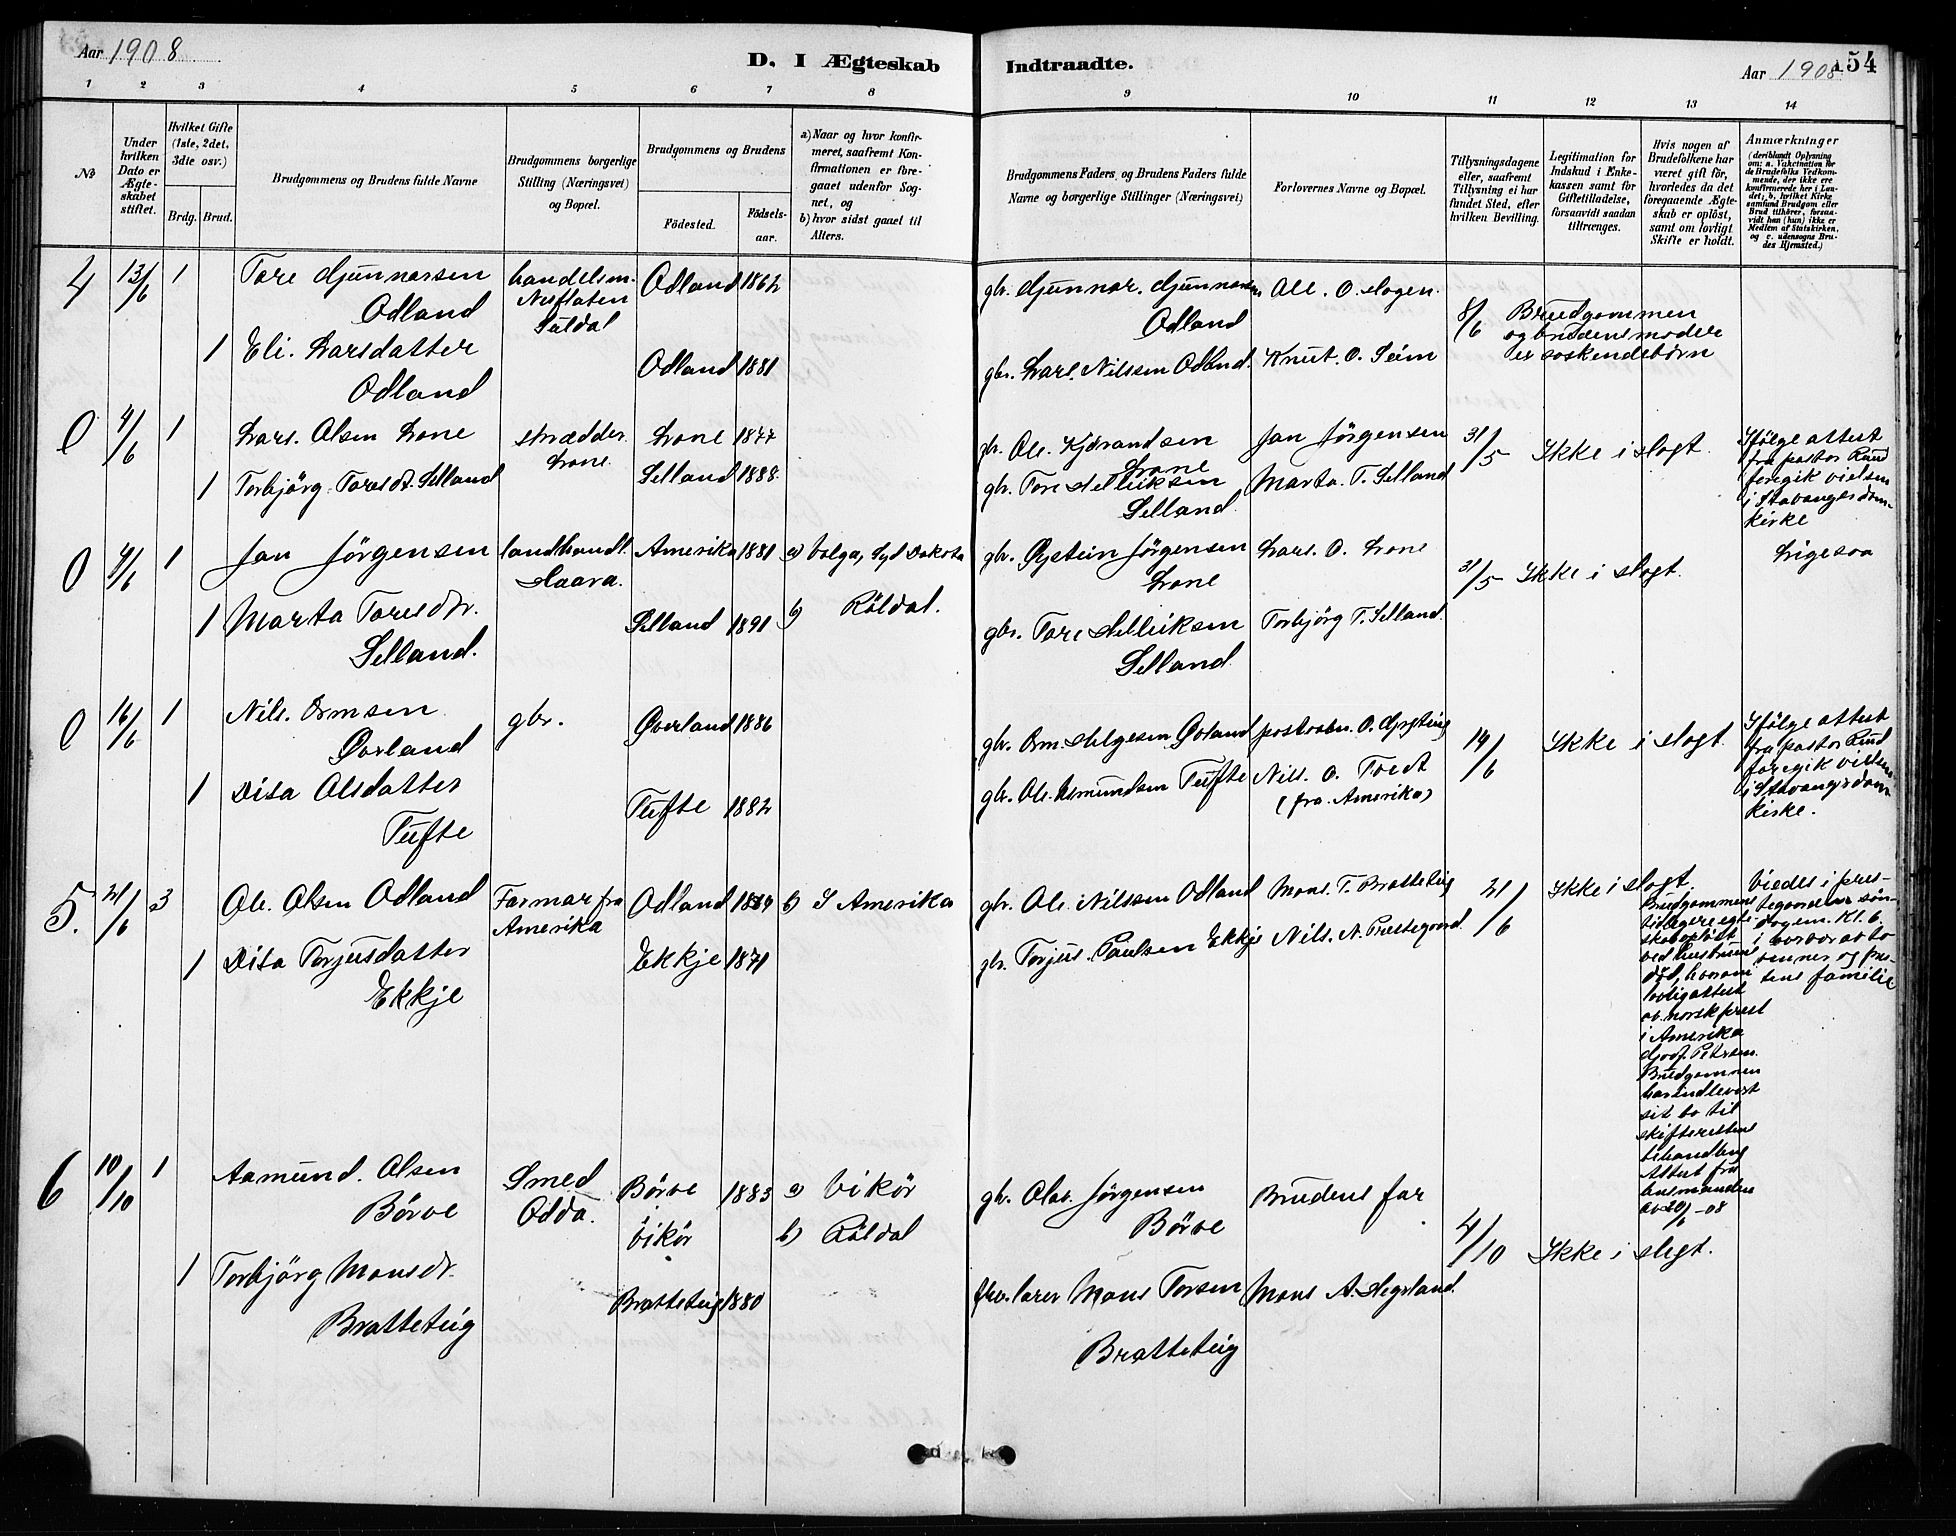 Aar 1908
D. I Ægteskab
Indtraadte.
Aar 1908
154
1 2 3 4 5 6 7 8 9 10 11 12 13 14
No
Under hvilken Dato er Ægteskabet stiftet.
Hvilket Gifte (1ste, 2det, 3die osv.)
Brdg. Brud.
Brudgommens og Brudens fulde Navne
Brudgommens borgerlige Stilling (Næringsvei) og Bopæl.
Brudgommens og Brudens
Fødested.
Fødsels-
aar.
a) Naar og hvor konfir-
meret, saafremt Kon-
firmationen er fore-
gaaet udenfor Sog-
net, og
b) hvor sidst gaaet til
Alters.
Brudgommens Faders og Brudens Faders fulde
Navne og borgerlige Stillinger (Næringsvei)
Forlovernes Navne og Bopæl.
Tillysningsdagene
eller, saafremt
Tillysning ei har
fundet Sted, efter
hvilken Bevilling.
Legitimation for
Indskud i Enke-
kassen samt for
Giftetilladelse,
forsaavidt saadan
tiltrænges.
Hvis nogen af
Brudefolkene har
været gift før,
hvorledes da det
foregaaende Ægte-
skab er opløst,
samt om lovligt
Skifte er holdt.
Anmærkninger
(deriblandt Oplysning
om: a. Vakcination for
de Brudefolks Vedkom-
mende, der ikke ere
konfirmerede her i Lan-
det; b. hvilket Kirke
samfund Brudgom eller
Brud tilhører, forsaa-
vidt han (hun) ikke er
Medlem af Statskirken,
og c. udensogns Bru-
des Hjemsted.)
4 13/6 1 Tore Gunnarsen
Odland
handelsm.
Nesflaten
Suldal
Odland 1862
gbr. Gunnar. Gunnarsen
Odland
Ole. O. Hagen.
8/6
Brudgommen
og brudens moder
er søskendebørn
1 Eli. Larsdatter
Odland
Odland 1881
gbr. Lars. Nilssen Odland.
Knut. O. Seim
0 4/6 1 Lars. Olsen Lone
skrædder
Lone
Lone 1877
gbr. Ole. Kjørandsen
Lone
Jan Jörgensen
31/5
Ikke i slegt.
Ifølge attest
fra pastor Rund
foregik vielsen
i Stavanger dom-
kirke
1 Torbjörg Toresdt. Selland
Selland 1888.
gbr. Tore Helliksen
Selland.
Marta. T. Selland
0 4/6 1 Jan Jörgensen
landhandl.
Haara.
Amerika 1881
a) Volga, Syd Dakota
b) Röldal.
gbr. Øystein Jörgensen
Lone
Lars. O. Lone
31/5
Ikke i slegt.
Ligesaa
1 Marta Toresdtr.
Selland.
Selland 1891
gbr. Tore Helliksen
Selland.
Torbjörg T. Selland.
0 16/6 1 Nils. Ormsen
Øverland
gbr.
Øverland 1886
gbr. Orm. Helgesen Øverland
14/6
Ikke i slegt.
Ifølge attest
fra pastor Rund
foregik vielsen
i Stavanger dom-
kirke.
1 Disa Olsdatter
Tufte
Tufte 1882
gbr. Ole. Asmundsen Tufte
Nils. O. Tvedt
(fra Amerika)
5. 21/6 3 Ole. Olsen Odland
Farmar fra
Amerika
Odland
b) I Amerika
gbr. Ole. Nilssen Odland
Mons. T. Bratteteig
21/6
Ikke i slegt.
1 Disa Torjusdatter
Ekkje
Ekkje 1871
gbr. Torjus. Paulsen Ekkje
Nils. N. Prestegaard.
Brudgommens
tidligere egte-
skab opløst
ved hustruens
død, hvorom
lovlig attest
av norsk prest
i Amerika
Petersen.
Brudgommen
har indlevert
sit bo til
skifterettens
behandling
Attest fra
lensmanden
av 20/6 -08
Viedes i pres-
tegaarden søn-
dagen. Kl. 6.
i nærvær av to
vidner og pres-
tens familie
6 10/10 1 Aamund. Olsen
Börve
Smed
Odda.
Börve
i
Vikör
1883
a) Vikör
b) Röldal
gbr. Olav. Jörgensen
Börve
Brudens far
4/10
Ikke i slegt.
1 Torbjörg Monsdt.
Bratteteig
Bratteteig 1880
fhv. lærer Mons Torsen
Bratteteig
Mons A. Hegerland.